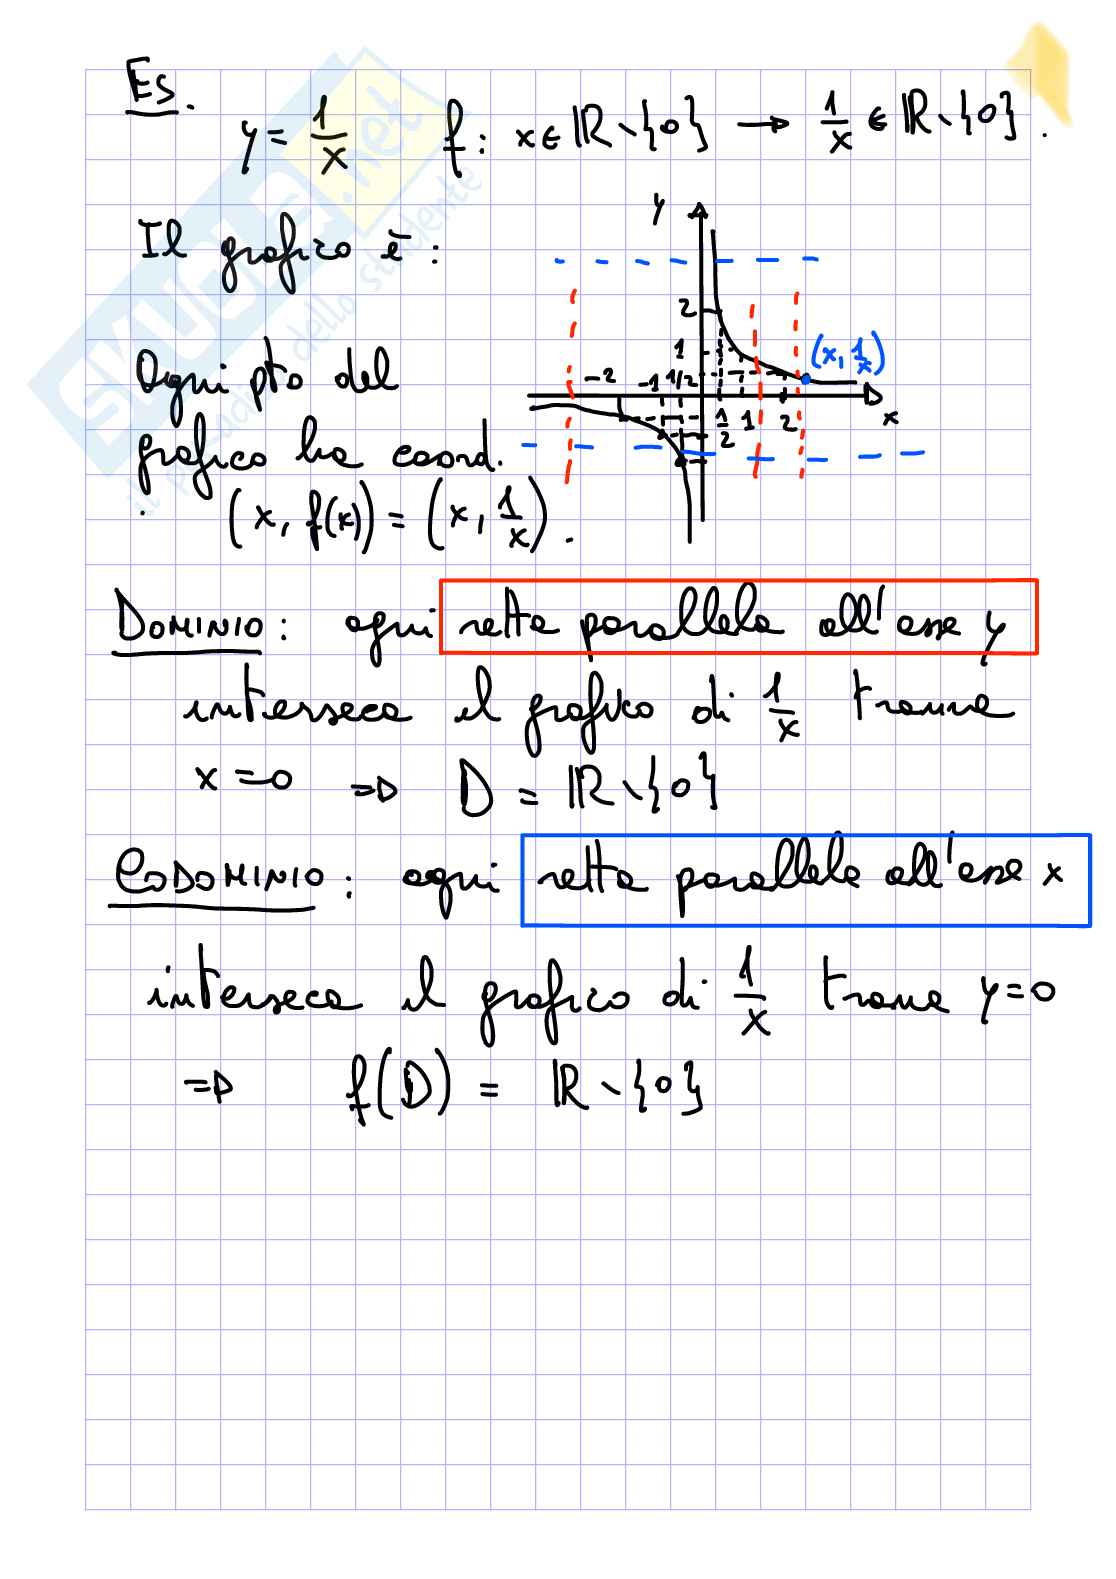 Es.
y = 1/x f: x ∈ ℝ∖{0} → 1/x ∈ ℝ∖{0}.
Il grafico è:
Ogni pto del
grafico ha coord.
(x, f(x)) = (x, 1/x).
y
2
1
(x, 1/x)
-2 -1 1/2
1/2 1 2 x
DOMINIO: ogni retta parallela all'asse y
interseca il grafico di 1/x tranne
x=0 ⇒ D = ℝ∖{0}
CODOMINIO: ogni retta parallela all'asse x
interseca il grafico di 1/x trane y=0
⇒ f(D) = ℝ∖{0}
SKUOLA.net
il paradiso dello studente